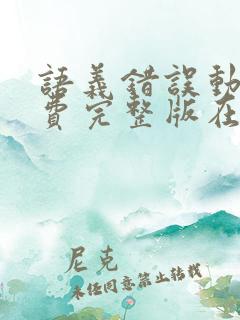 語義錯誤動
費完整版在
尼克
未经同意禁止转载